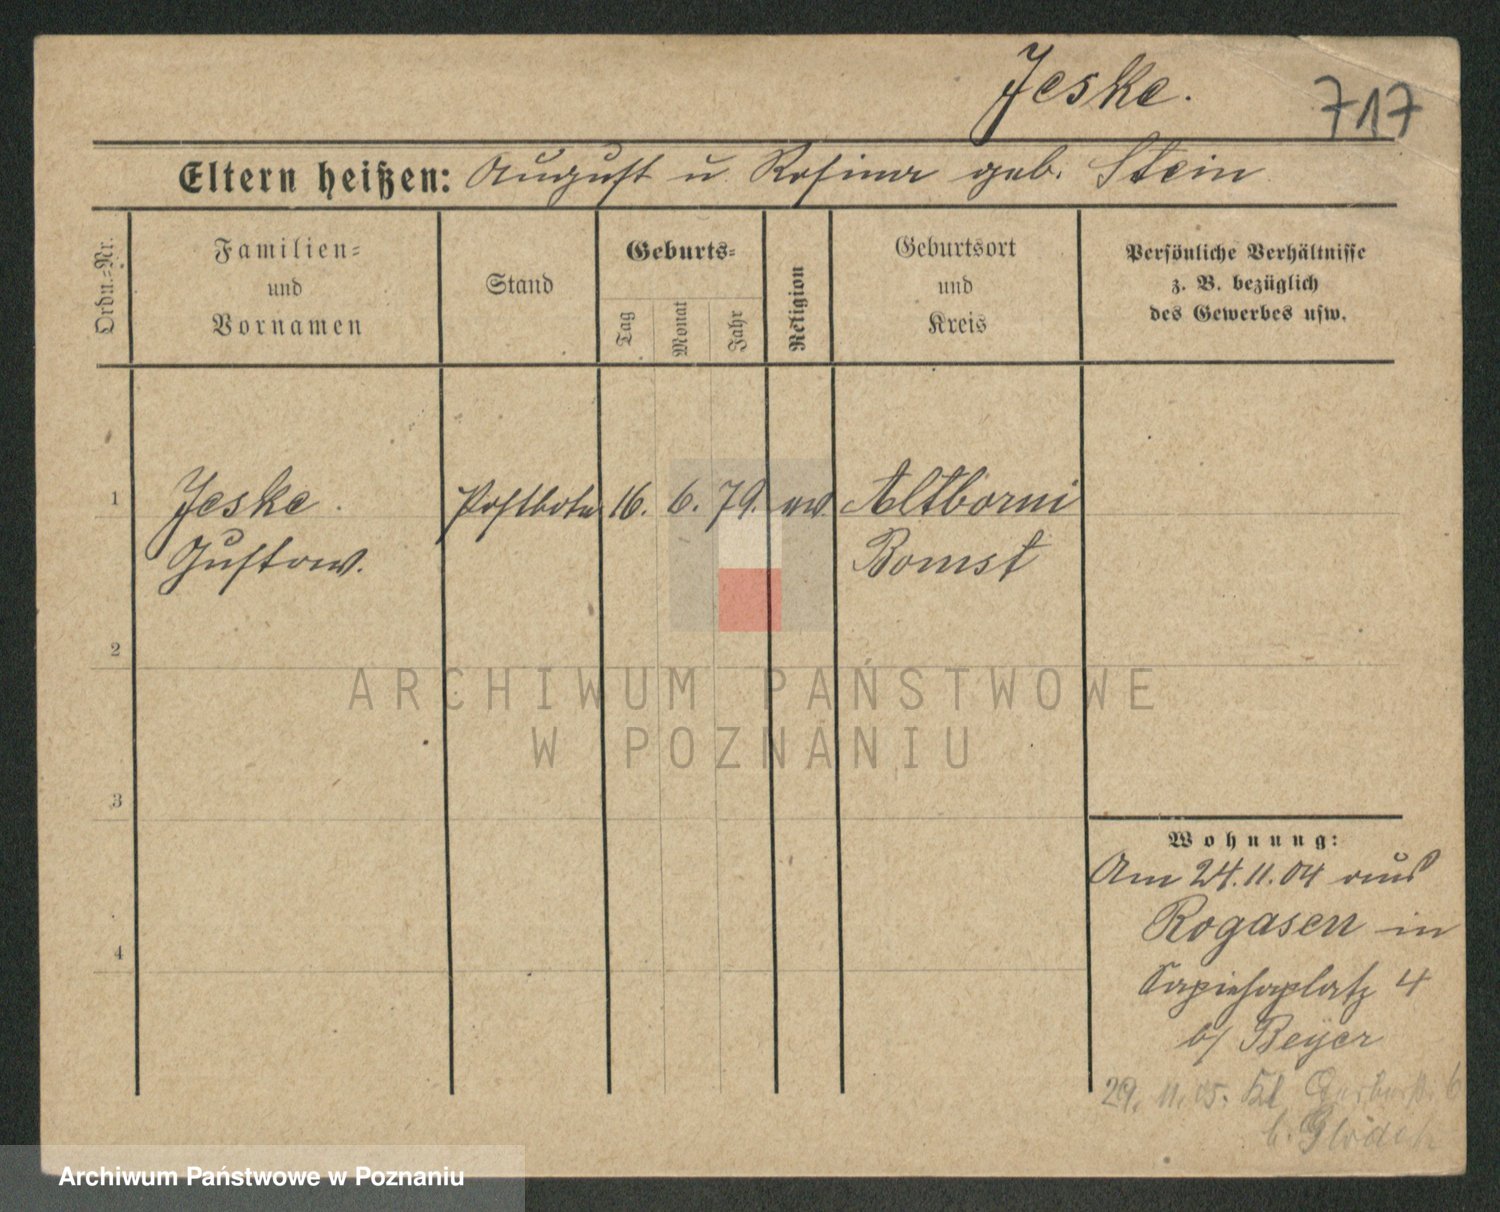 Jeske.
717
Eltern heißen: August u Rosina geb. Stein
Ordn.-Nr.
Familien-
und
Vornamen
Stand
Geburts-
Tag
Monat
Jahr
Religion
Geburtsort
und
Kreis
Persönliche Verhältnisse
z. B. bezüglich
des Gewerbes usw.
1 Jeske. Postbote 16. 6. 79. ev Altborui
Gustav. Bomst
2
ARCHIWUM PAŃSTWOWE
W POZNANIU
3
Wohnung:
Am 24.11.04 aus
Rogasen in
4
Sapiehaplatz 4
b/ Beyer
29. 11. 05. Kl Gerberstr. 6
b.
Archiwum Państwowe w Poznaniu